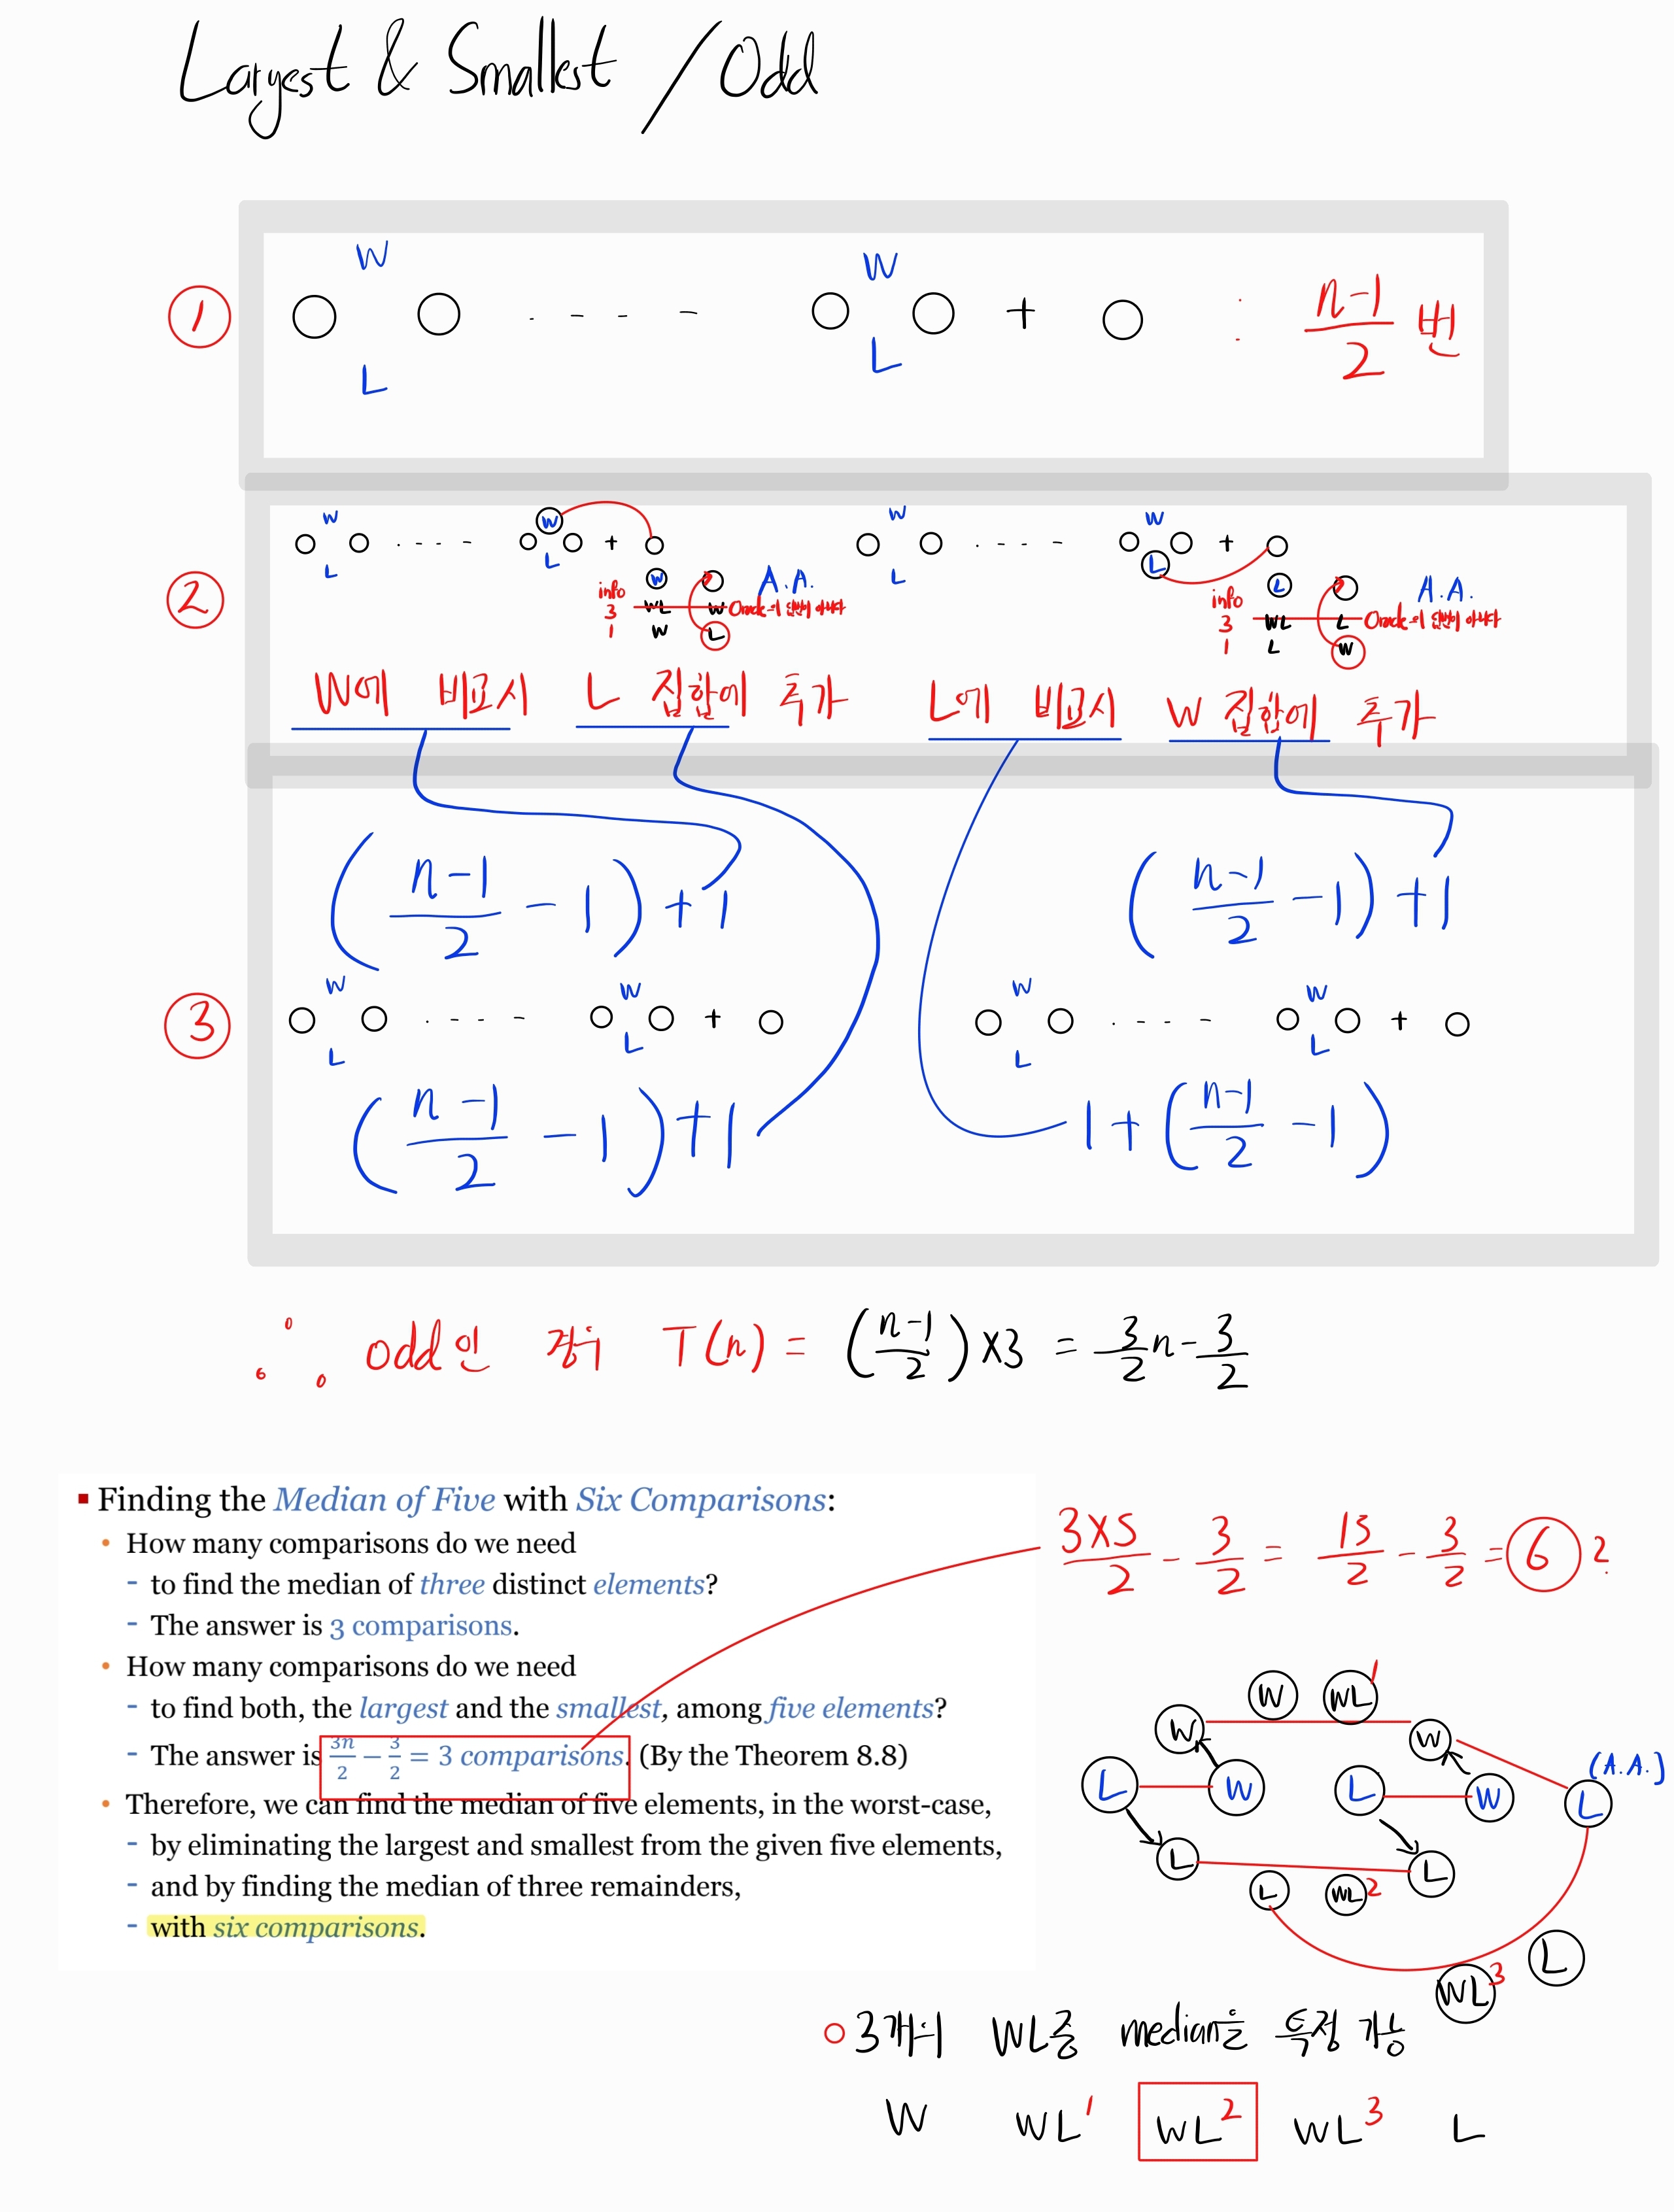 Largest & Smallest / Odd
W W
① + : n-1/2 번
L L
W W W W
+ +
L L L L
② W A.A. L A.A.
info info
3 WL W Oracle의 답변이 아니다 3 WL L Oracle의 답변이 아니다
1 W L 1 L W
W에 비교시 L 집합에 추가 L에 비교시 W 집합에 추가
(n-1/2 - 1) + 1 (n-1/2 - 1) + 1
W W W W
③ + +
L L L L
(n-1/2 - 1) + 1 1 + (n-1/2 - 1)
∴ odd인 경우 T(n) = (n-1/2) x3 = 3/2 n - 3/2
▪ Finding the Median of Five with Six Comparisons:
• How many comparisons do we need
- to find the median of three distinct elements?
- The answer is 3 comparisons.
• How many comparisons do we need
- to find both, the largest and the smallest, among five elements?
- The answer is 3n/2 - 3/2 = 3 comparisons. (By the Theorem 8.8)
• Therefore, we can find the median of five elements, in the worst-case,
- by eliminating the largest and smallest from the given five elements,
- and by finding the median of three remainders,
- with six comparisons.
3x5/2 - 3/2 = 15/2 - 3/2 = 6 ?
W WL 1
W W
L W L W L (A.A.)
L L
L WL 2
L
WL 3
○ 3개의 WL중 median을 특정 가능
W WL1 WL2 WL3 L